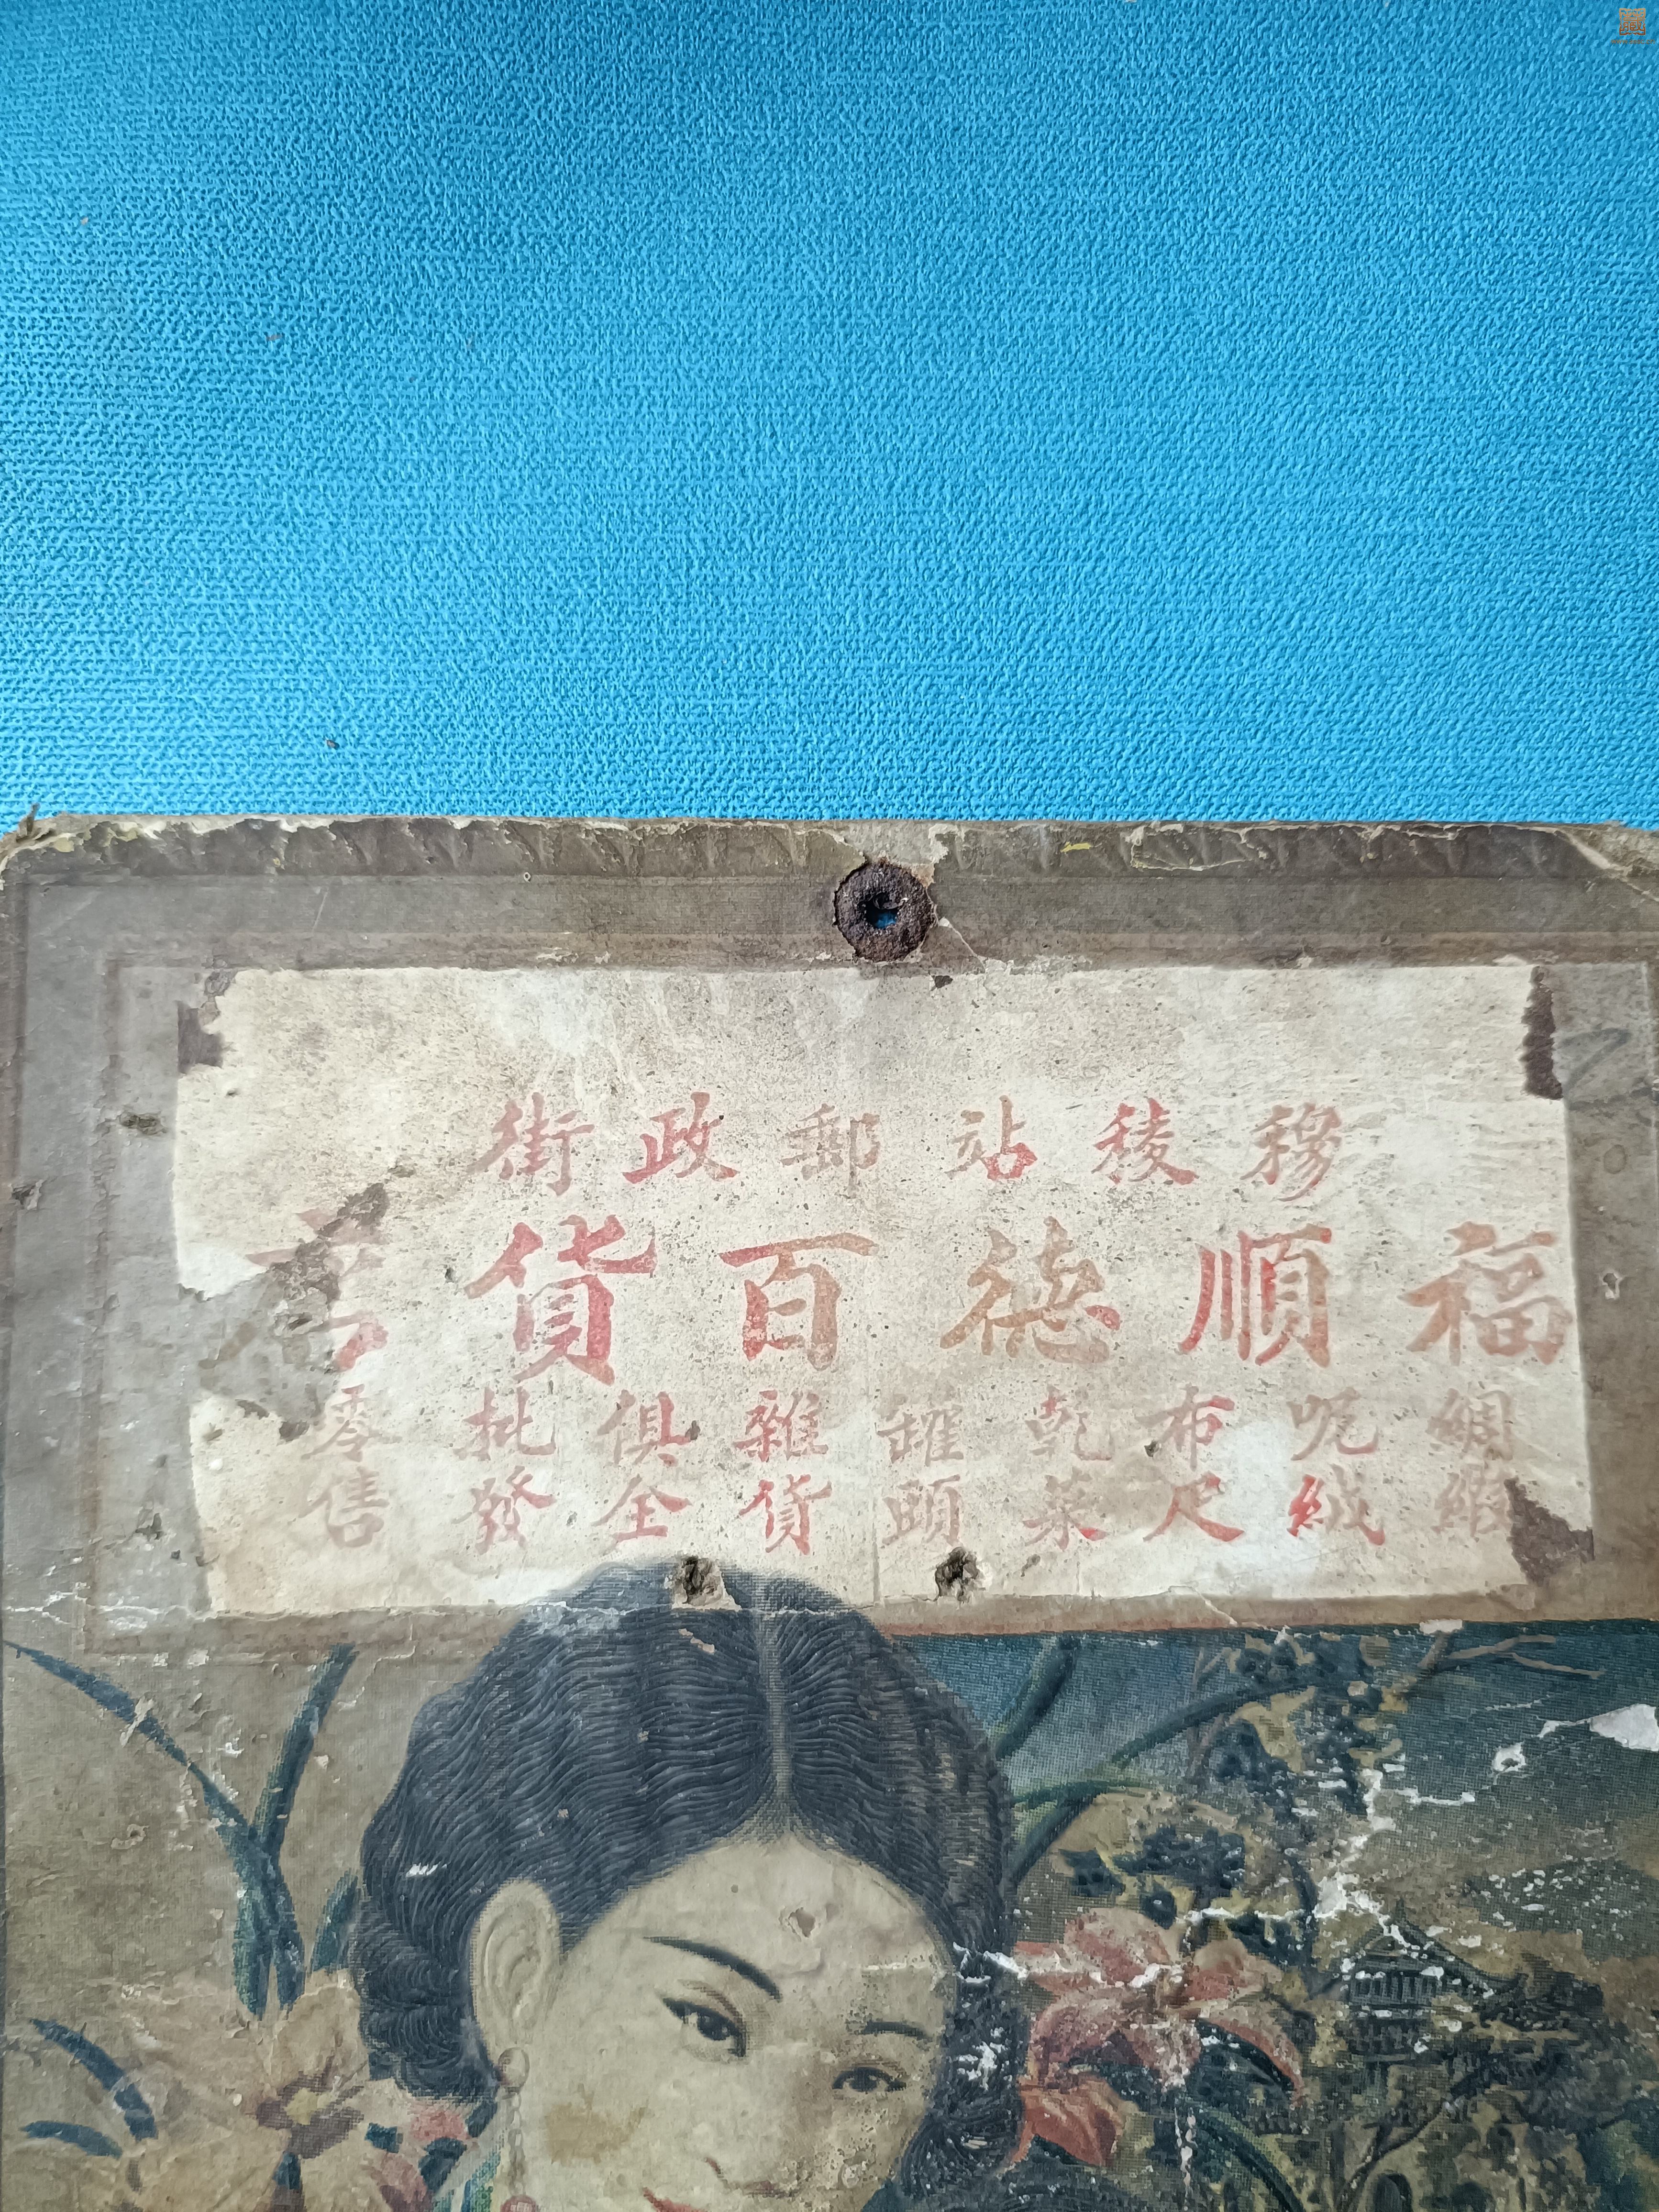 穆稜站郵政街
福順德百貨
綢緞
呢絨
布尺
乾菜
罐頭
雜貨
俱全
批發
零售